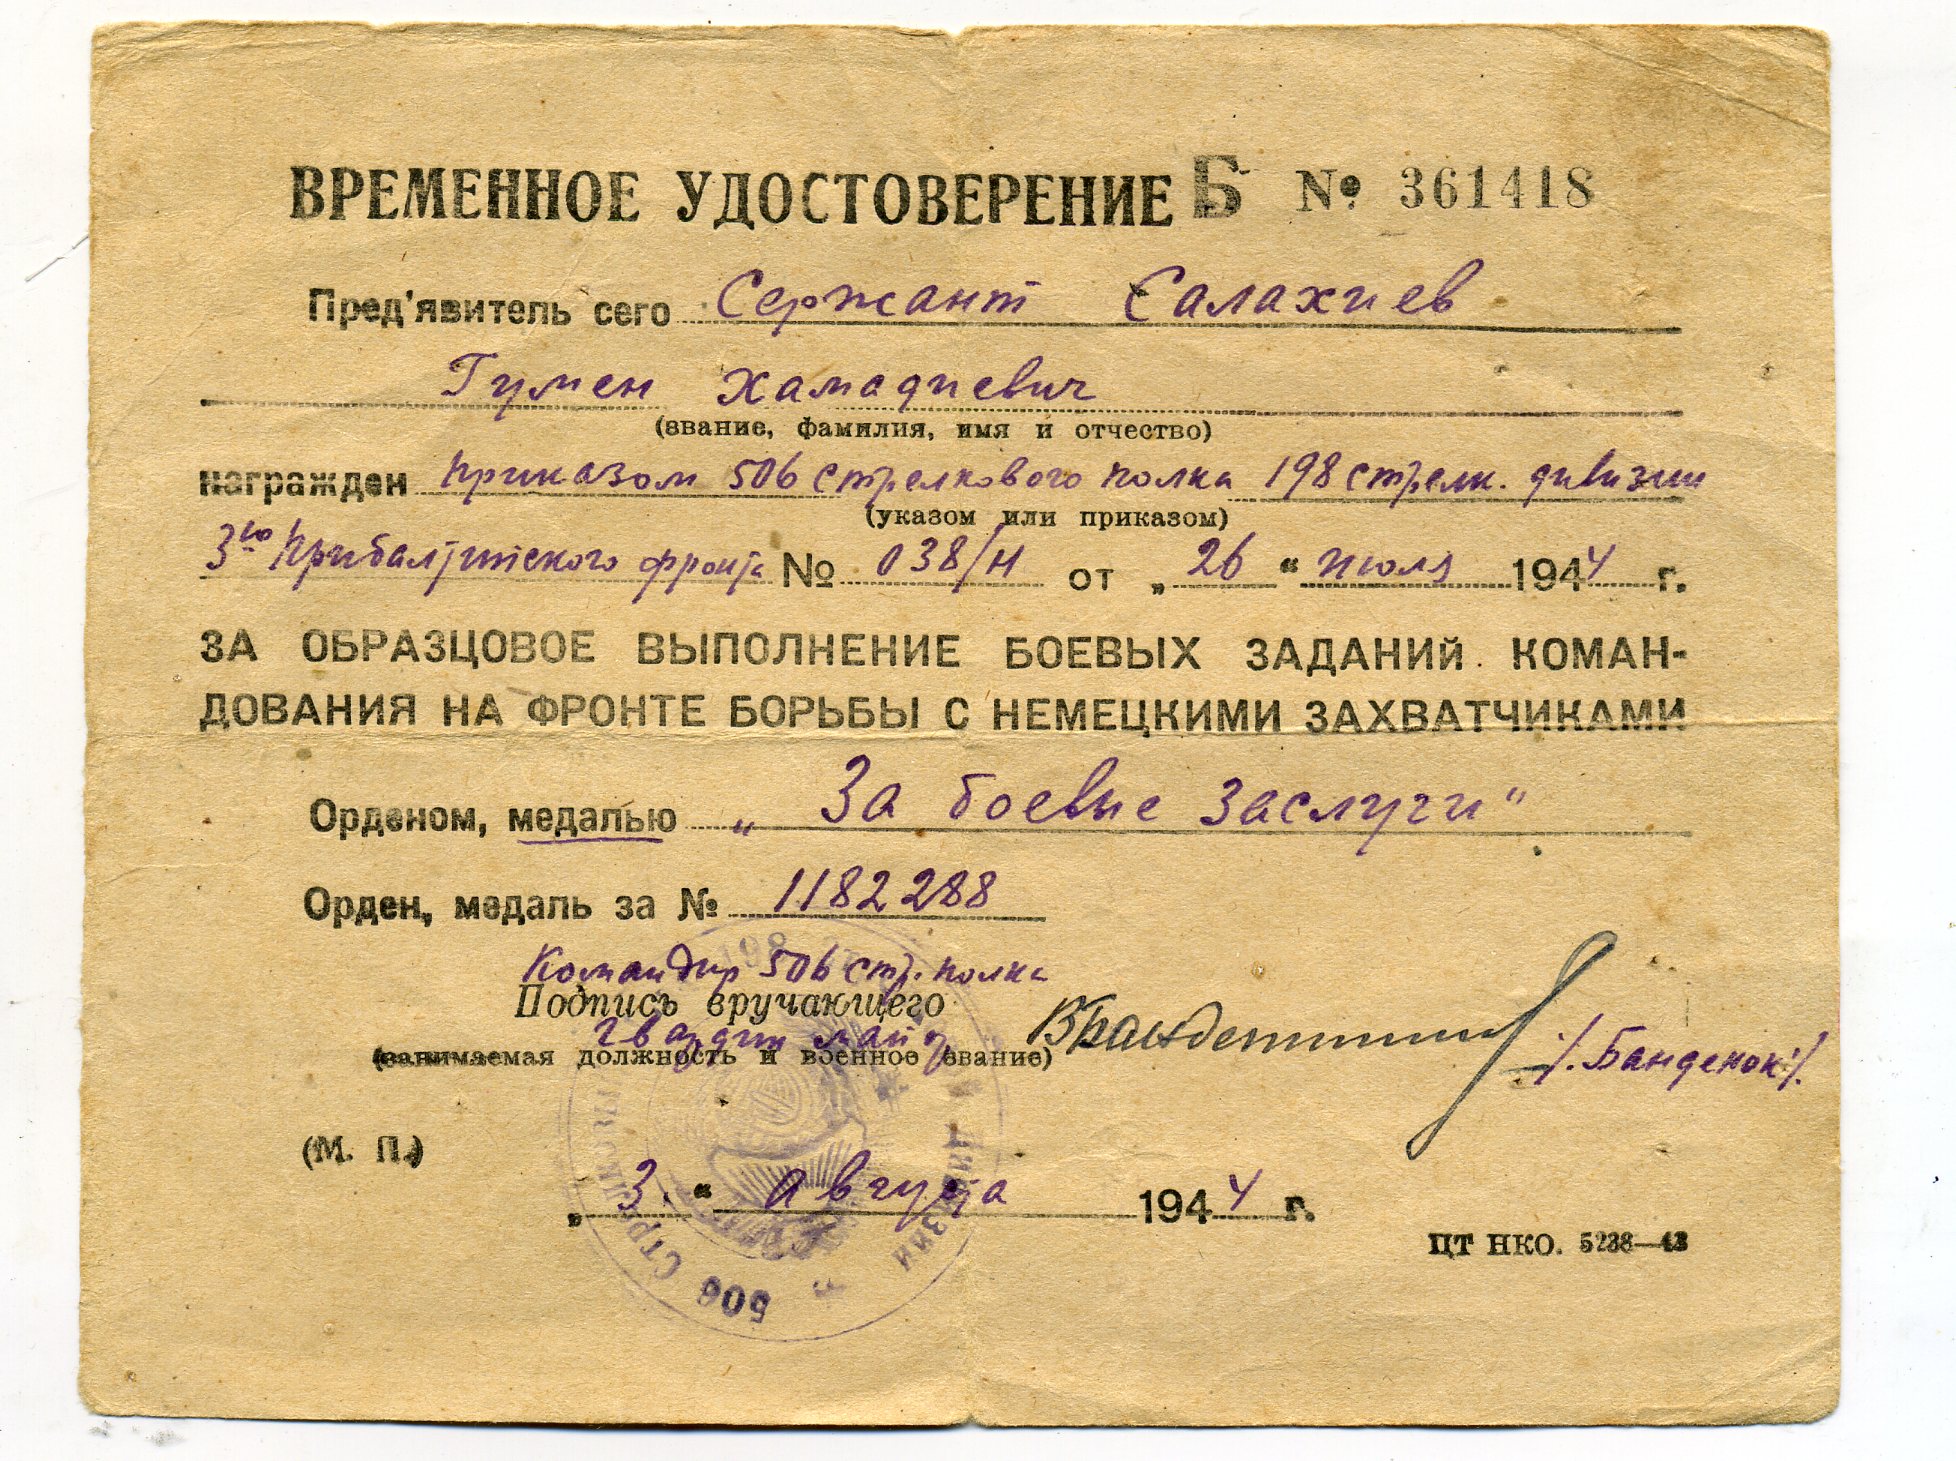 ВРЕМЕННОЕ УДОСТОВЕРЕНИЕ Б № 361418
Пред'явитель сего Сержант Салахиев
Гумен Хамадиевич
(звание, фамилия, имя и отчество)
награжден приказом 506 стрелкового полка 198 стрелк. дивизии
(указом или приказом)
3го Прибалтийского фронта № 038/н от „26“ июля 1944 г.
ЗА ОБРАЗЦОВОЕ ВЫПОЛНЕНИЕ БОЕВЫХ ЗАДАНИЙ КОМАН-
ДОВАНИЯ НА ФРОНТЕ БОРЬБЫ С НЕМЕЦКИМИ ЗАХВАТЧИКАМИ
Орденом, медалью „За боевые заслуги“
Орден, медаль за № 1182288
Командир 506 стр. полка
Подпись вручающего
гвардии майор
(занимаемая должность и военное звание)
/.Банденок/.
(М. П.)
„3“ августа 1944 г.
ЦТ НКО. 5238—43
506 СТРЕЛКОВЫЙ
198
ДИВИЗИИ